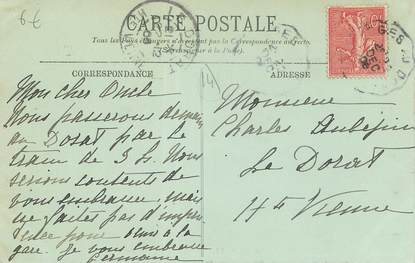 6€
CARTE POSTALE
Tous les Pays étrangers n'acceptent pas la Correspondance au recto.
(Se renseigner à la Poste)
CORRESPONDANCE
ADRESSE
Mon cher Oncle
Nous passerons demain
au Dorat par le
train de 3 h. Nous
serions contents de
vous embrasser, mais
ne faites pas d'impru
dence pour venir à la
gare. Je vous embrasse
Germaine
Monsieur
Charles
Le Dorat
Hte Vienne